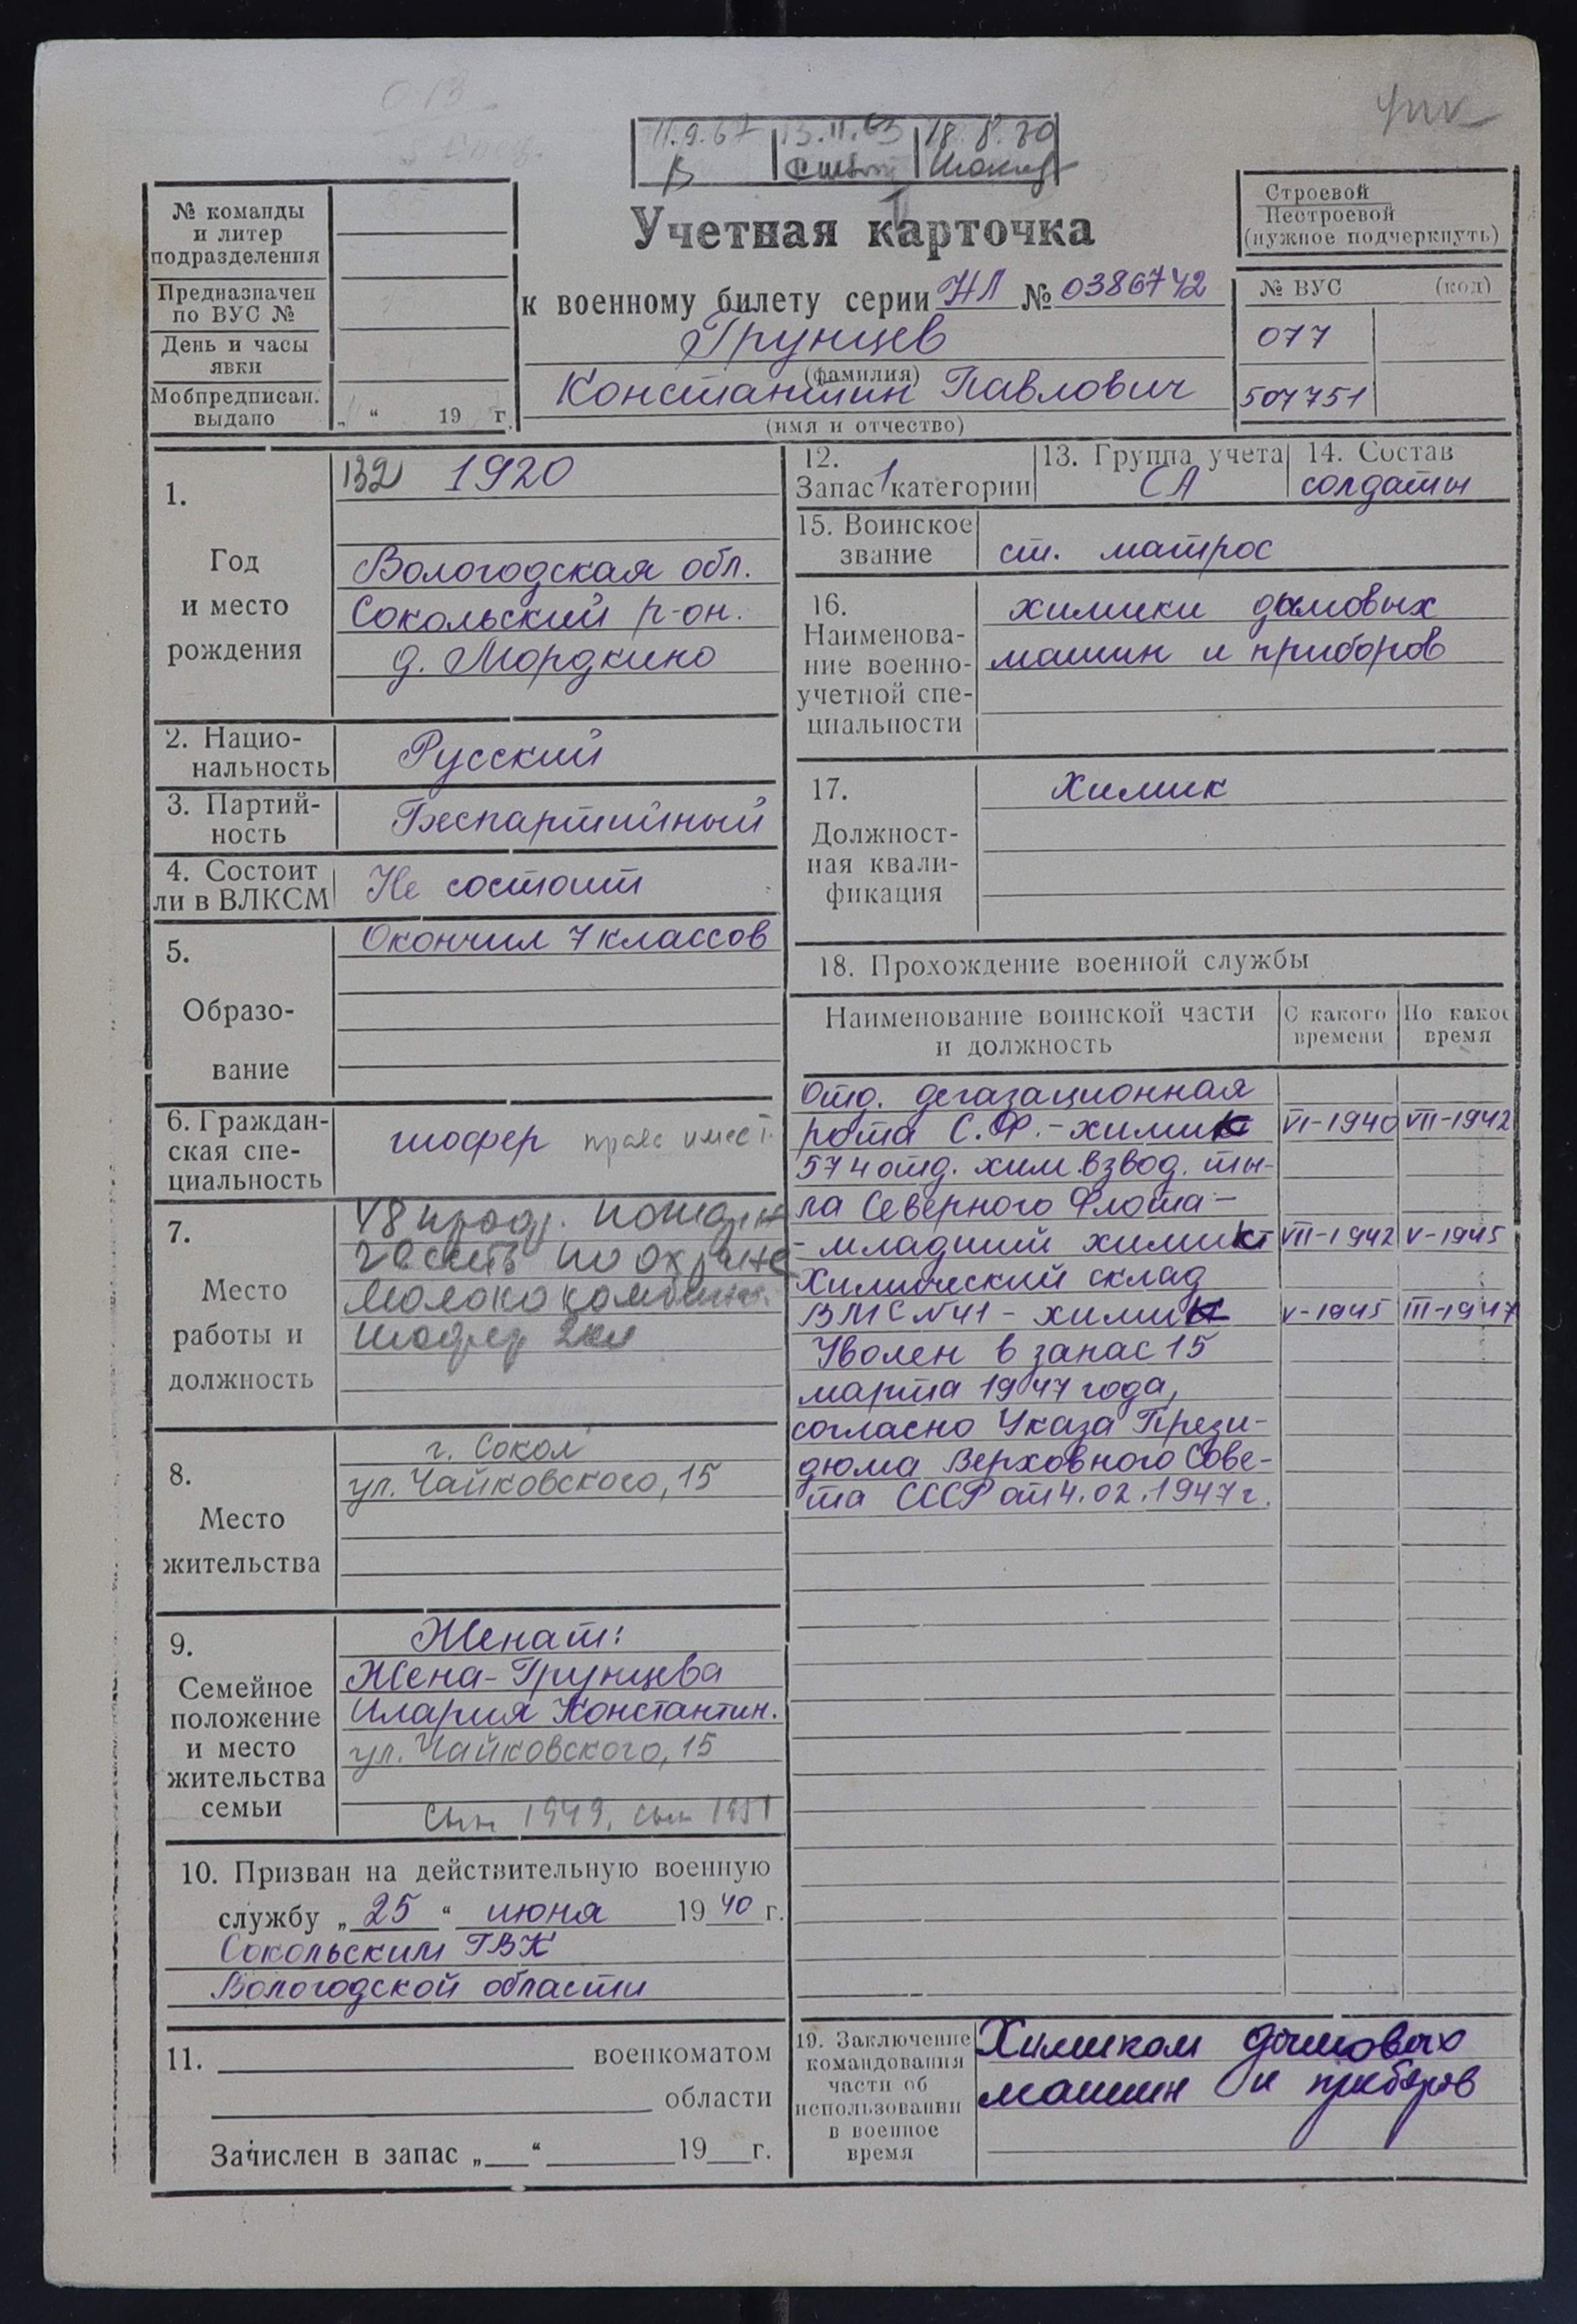 11.9.67 13.11.63 18.8.70
Учетная карточка
к военному билету серии НЛ № 0386742
Грунцев
(фамилия)
Константин Павлович
(имя и отчество)
№ команды
и литер
подразделения
Предназначен
по ВУС №
День и часы
явки
Мобпредписан.
выдано
„ “ 19 г.
Строевой
Нестроевой
(нужное подчеркнуть)
№ ВУС (код)
077
507751
1.
Год
и место
рождения
132 1920
Вологодская обл.
Сокольский р-он.
д. Мордкино
2. Нацио-
нальность
Русский
3. Партий-
ность
Беспартийный
4. Состоит
ли в ВЛКСМ
Не состоит
5.
Образо-
вание
Окончил 7 классов
6. Граждан-
ская спе-
циальность
шофер права имеет
7.
Место
работы и
должность
часть по охране
Молоко комбината
шофер 2кл
8.
Место
жительства
г. Сокол
ул. Чайковского, 15
9.
Семейное
положение
и место
жительства
семьи
Женат:
Жена-Грунцева
Илария Константин.
ул. Чайковского, 15
сын 1949, сын 1951
10. Призван на действительную военную
службу „25“ июня 1940 г.
Сокольским ГВК
Вологодской области
11. военкоматом
области
Зачислен в запас „ “ 19 г.
12.
Запас 1 категории
13. Группа учета
СА
14. Состав
солдаты
15. Воинское
звание
ст. матрос
16.
Наименова-
ние военно-
учетной спе-
циальности
химики дымовых
машин и приборов
17.
Должност-
ная квали-
фикация
Химик
18. Прохождение военной службы
Наименование воинской части
и должность
С какого
времени
По какое
время
Отд. дегазационная
рота С.Ф.-химик VI-1940 VII-1942
574 отд. хим.взвод. ты-
ла Северного Флота-
- младший химик VII-1942 V-1945
Химический склад
ВМС N41 - химик V-1945 III-1947
Уволен в запас 15
марта 1947 года,
согласно Указа Прези-
дюма Верховного Сове-
та СССР от 4.02.1947г.
19. Заключение
командования
части об
использовании
в военное
время
Химиком дымовых
машин и приборов